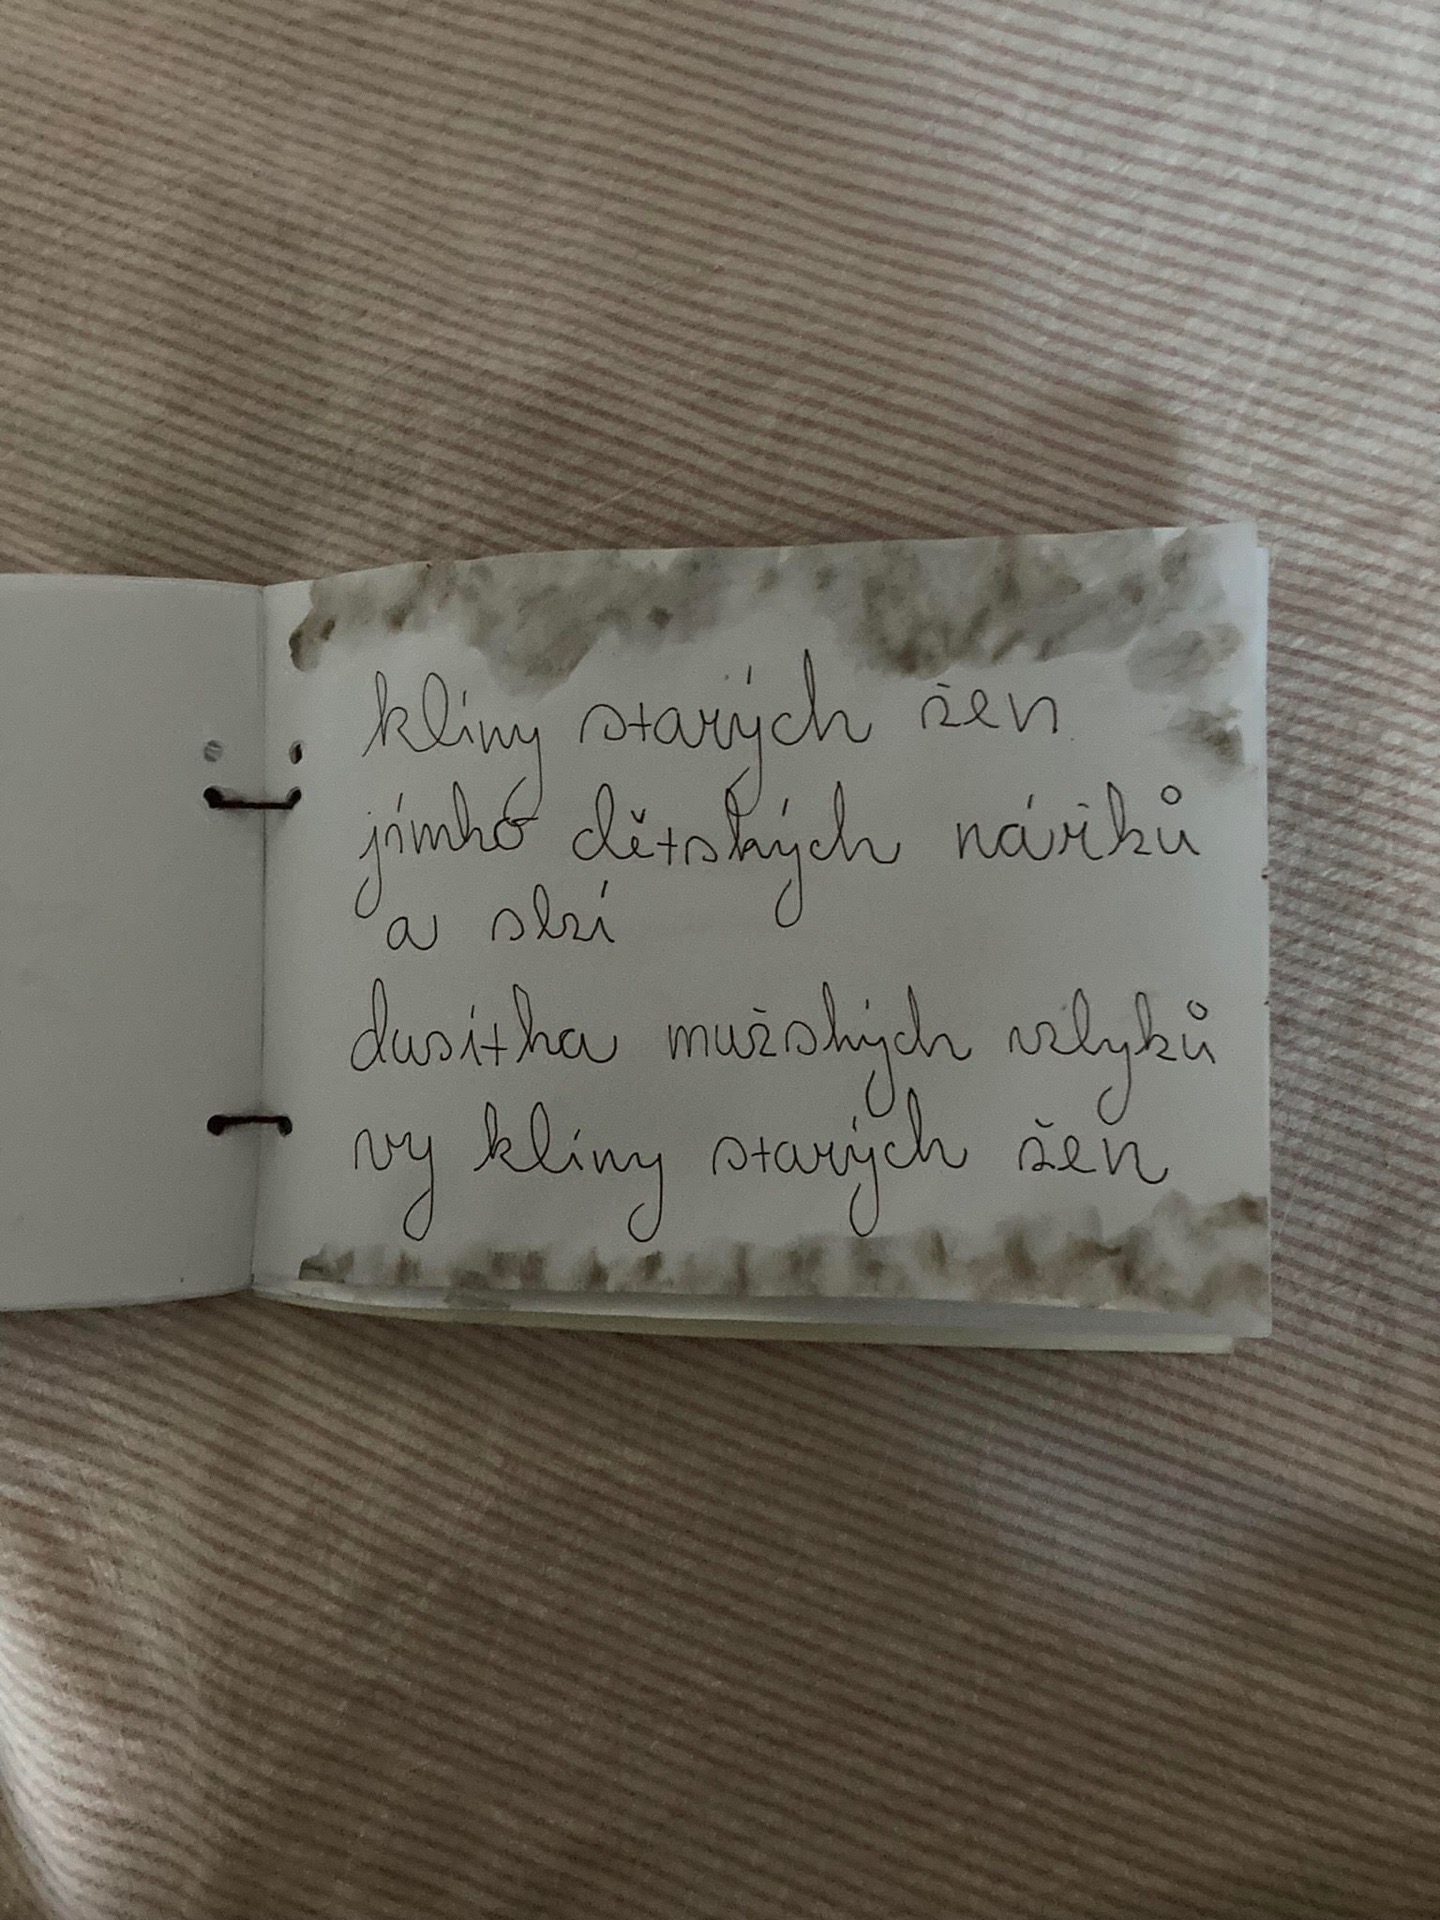 klíny starých žen
jímko dětských nářků
a slzí
dusítka mužských vzlyků
vy klíny starých žen